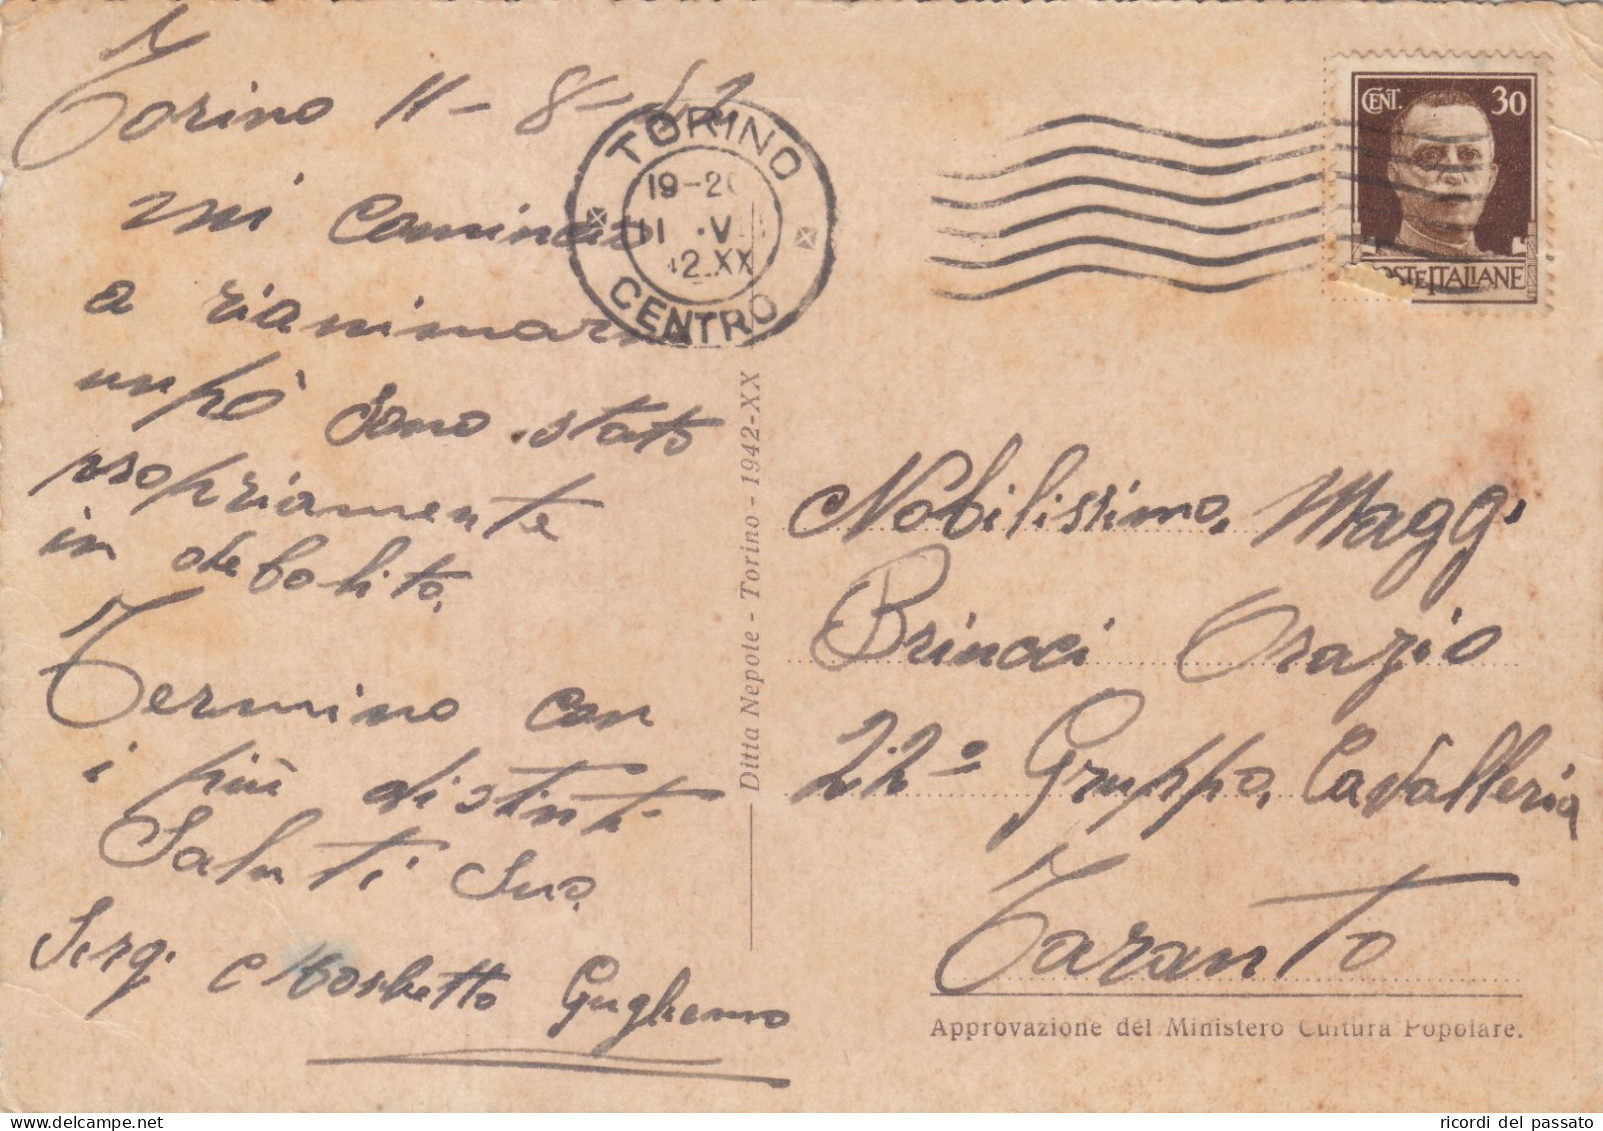 Torino 11-8-42
mi comincio
a rianimare
un pò sono stato
propriamente
in debolito.
Termino con
i più distinti
Saluti Suo.
Serg. Moschetto Guglielmo
TORINO
19-20
11 . V
42 XX
CENTRO
CENT. 30
POSTE ITALIANE
Ditta Nepote - Torino - 1942-XX
Nobilissimo, Magg.
Brincci Orazio
22º Gruppo, Cavalleria
Taranto
Approvazione del Ministero Cultura Popolare.
ricordi del passato